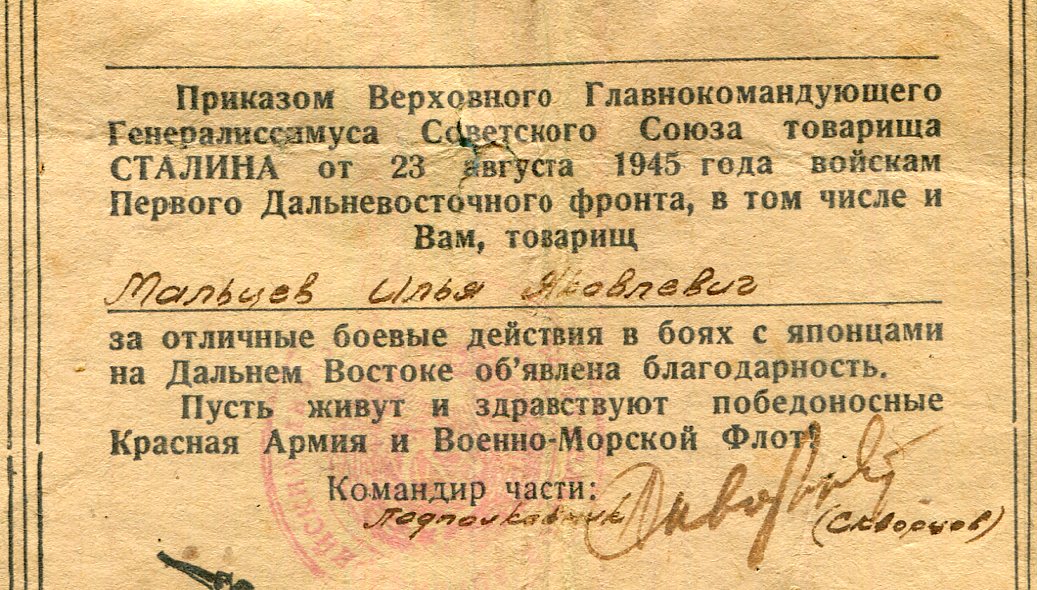 Приказом Верховного Главнокомандующего
Генералиссимуса Советского Союза товарища
СТАЛИНА от 23 августа 1945 года войскам
Первого Дальневосточного фронта, в том числе и
Вам, товарищ
Мальцев Илья Яковлевич
за отличные боевые действия в боях с японцами
на Дальнем Востоке об’явлена благодарность.
Пусть живут и здравствуют победоносные
Красная Армия и Военно-Морской Флот!
Командир части:
Подполковник (Скворцов)